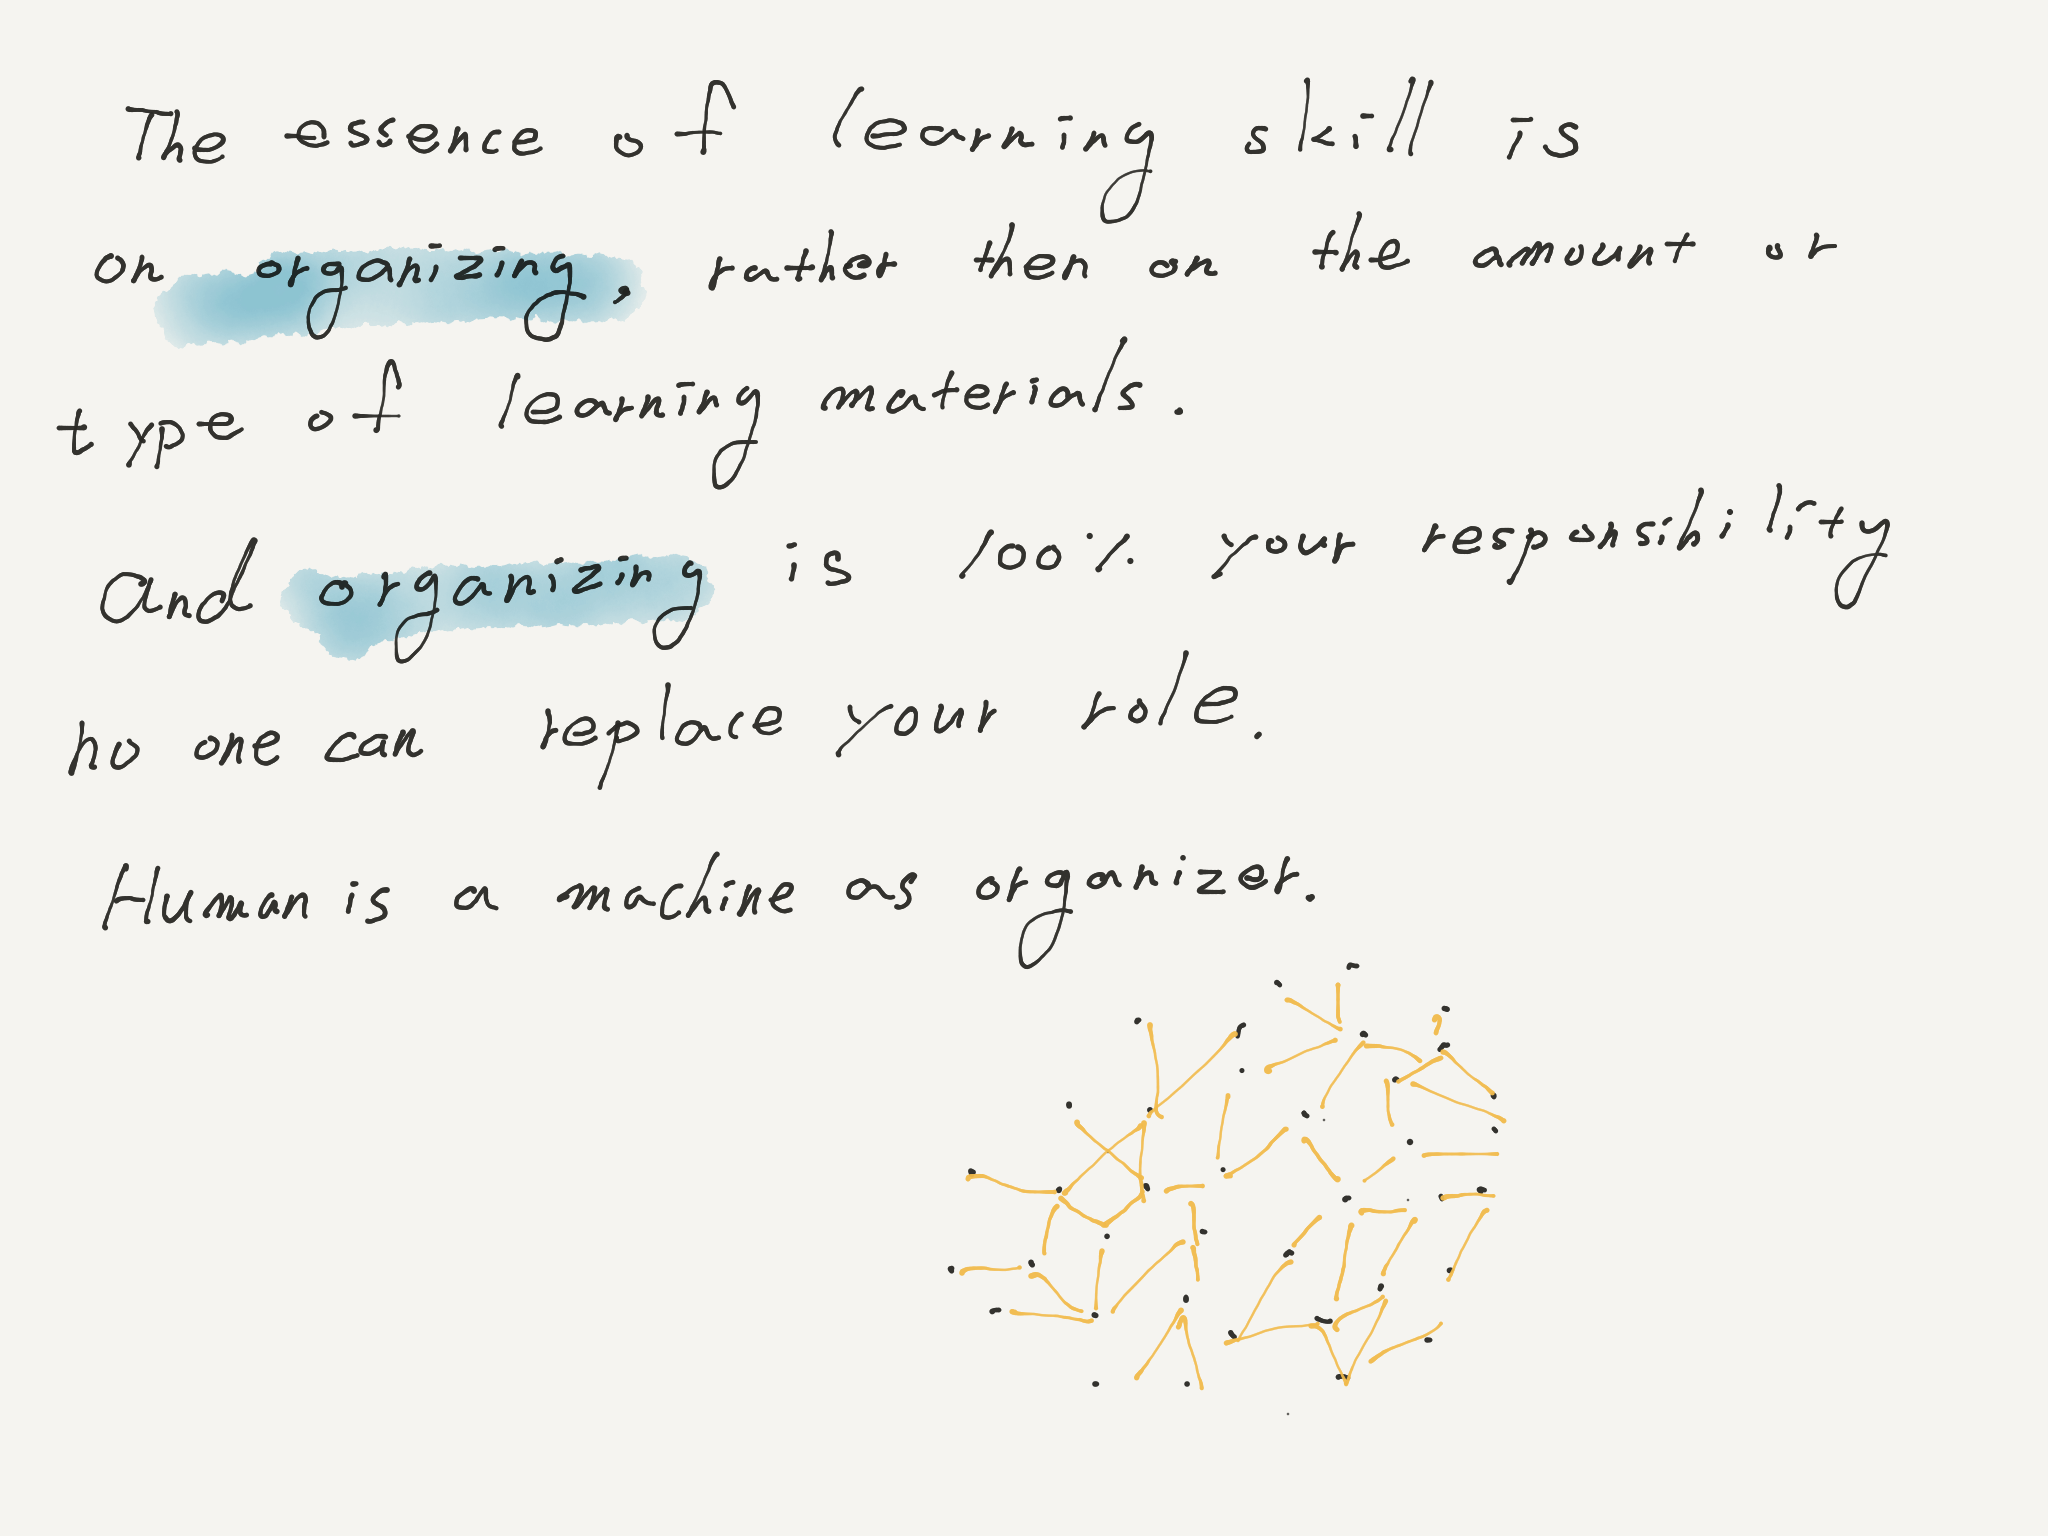 The essence of learning skill is
on organizing, rather then on the amount or
type of learning materials.
And organizing is 100% your responsibility
no one can replace your role.
Human is a machine as organizer.